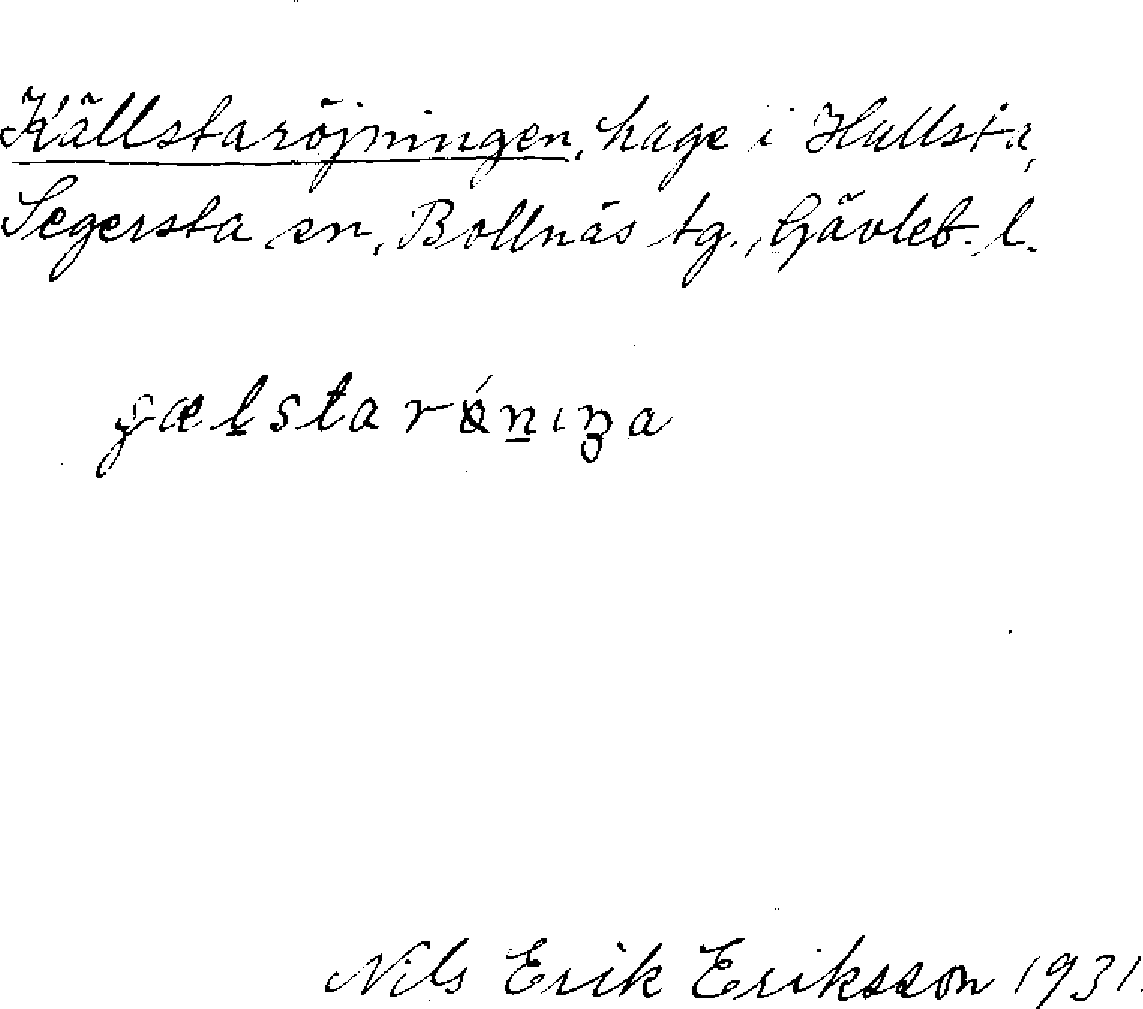 Källstaröjningen, hage i Hallsta,
Segersta sn, Bollnäs tg., Gävleb. l.
Nils Erik Eriksson 1931.